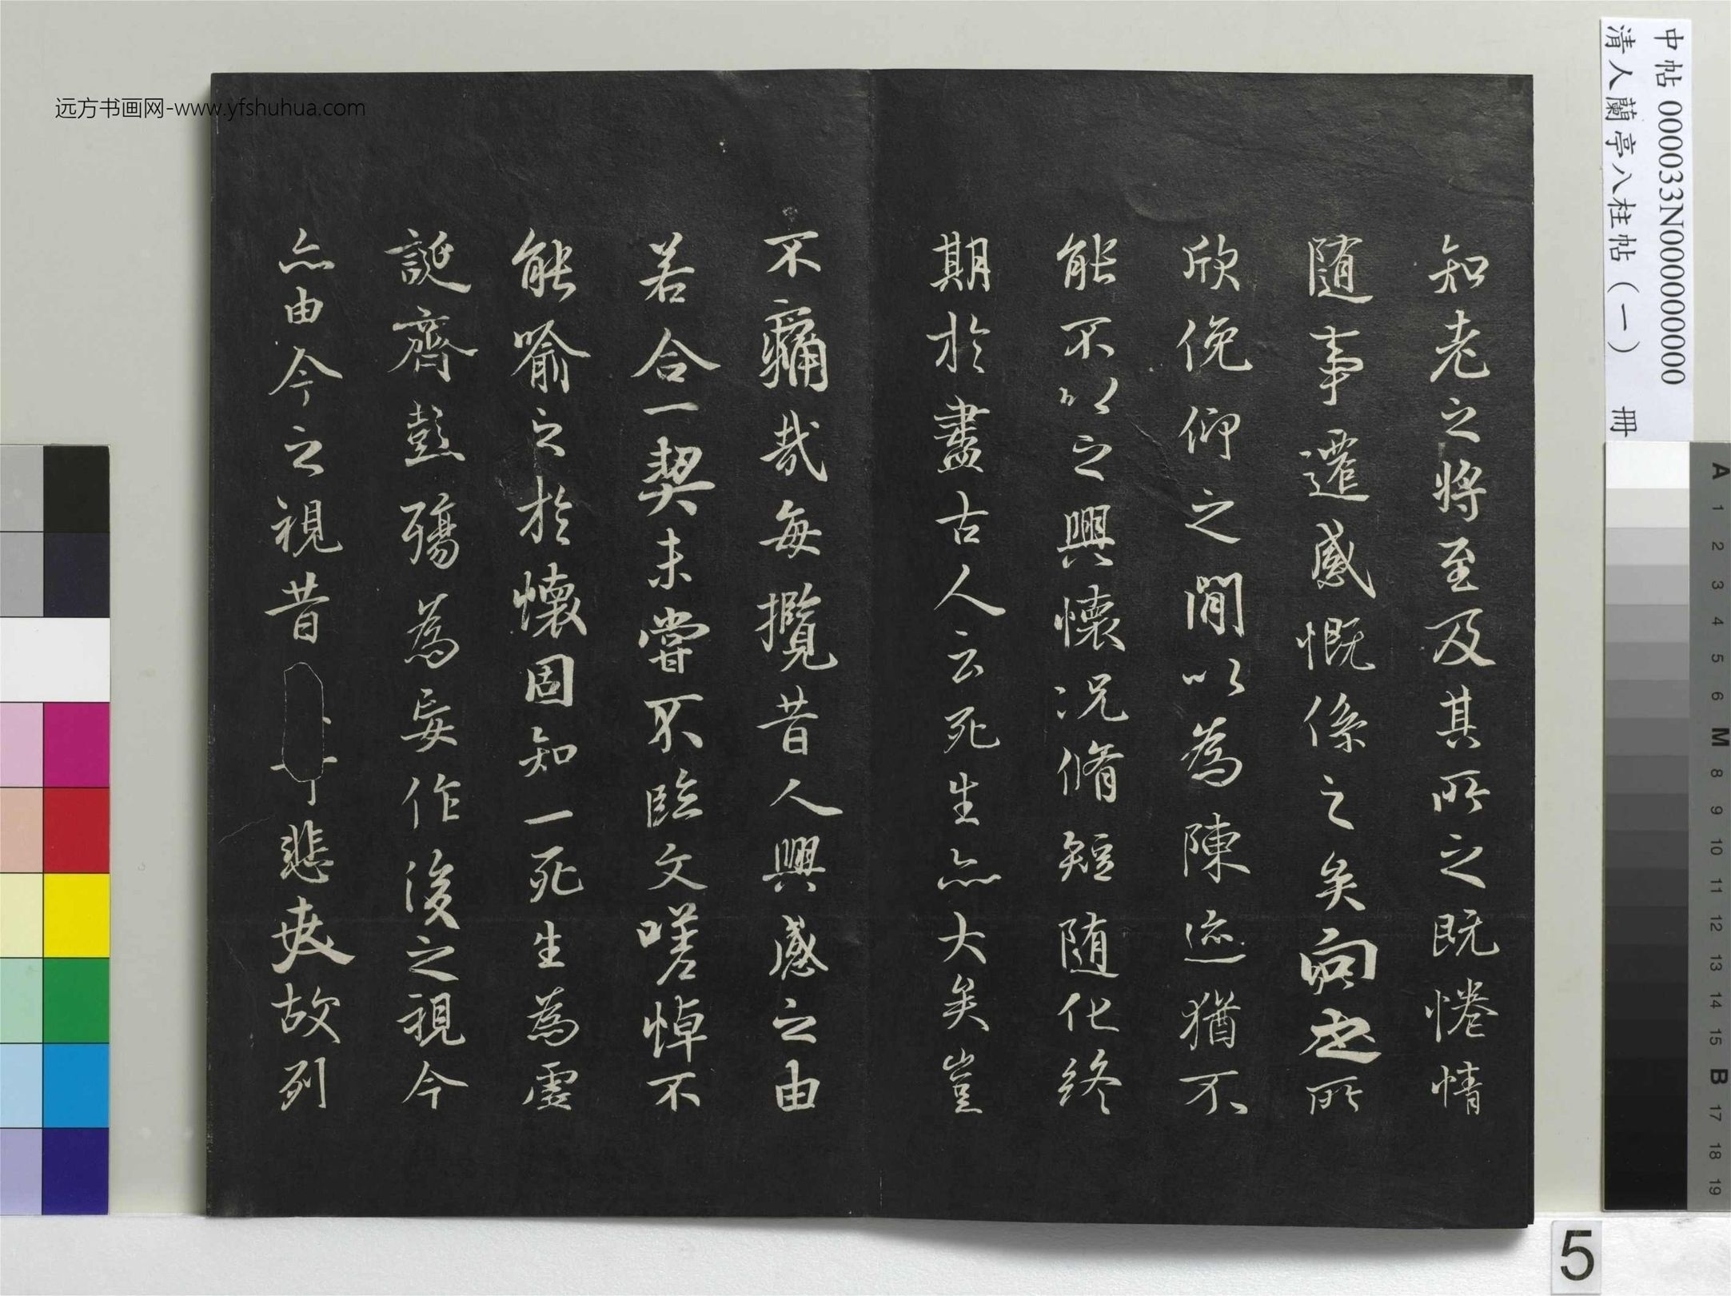 远方书画网-www.yfshuhua.com
中帖 000033N000000000
清人蘭亭八柱帖（一） 冊
知老之將至及其所之既惓情
随事遷感慨係之矣向之所
欣俛仰之閒以為陳迹猶不
能不以之興懷況脩短随化終
期於盡古人云死生亦大矣豈
不痛哉每攬昔人興感之由
若合一契未嘗不臨文嗟悼不
能喻之於懷固知一死生為虛
誕齊彭殤為妄作後之視今
亦由今之視昔悲夫故列
A 1 2 3 4 5 6 M 8 9 10 11 12 13 14 15 B 17 18 19
5